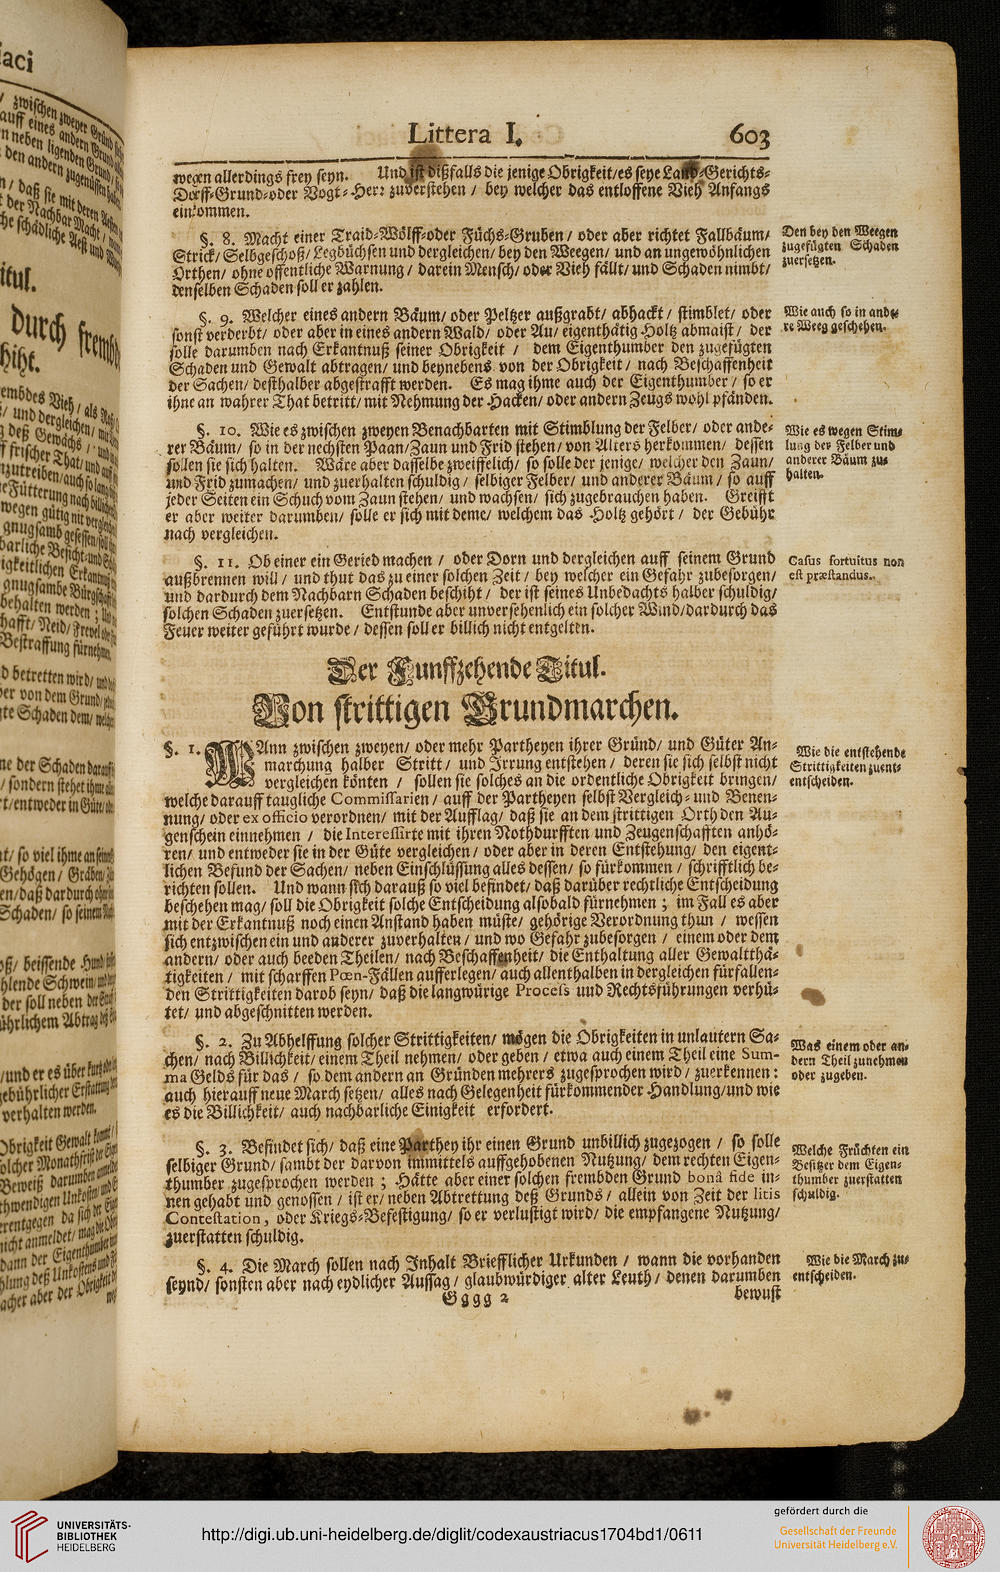 Littera I. 603
wegen allerdings frey seyn. Und ist dißfalls die jenige Obrigkeit/ es seye Land-Gerichts-
Dorff-Grund-oder Vogt-Herr zuverstehen / bey welcher das entloffene Vieh Anfangs
einkommen.
§. 8. Macht einer Traid-Wölff-oder Füchs-Gruben / oder aber richtet Fallbäum/
Strick/ Selbgeschoß/ Legbüchsen und dergleichen/ bey den Weegen/ und an ungewöhnlichen
Orthen/ ohne offentliche Warnung / darein Mensch/ oder Vieh fällt/ und Schaden nimbt/
denselben Schaden soll er zahlen.
Den bey den Weegen
zugefügten Schaden
zuersetzen.
§. 9. Welcher eines andern Bäum/ oder Peltzer außgrabt/ abhackt / stimblet/ oder
sonst verderbt/ oder aber in eines andern Wald/ oder Au/ eigenthätig Holtz abmaist / der
solle darumben nach Erkantnuß seiner Obrigkeit / dem Eigenthumber den zugefügten
Schaden und Gewalt abtragen/ und beynebens von der Obrigkeit / nach Beschaffenheit
der Sachen/ desthalber abgestrafft werden. Es mag ihme auch der Eigenthumber / so er
ihne an wahrer That betritt/ mit Nehmung der Hacken/ oder andern Zeugs wohl pfänden.
Wie auch so in ande-
re Weeg geschehen.
§. 10. Wie es zwischen zweyen Benachbarten mit Stimblung der Felber/ oder ande-
rer Bäum/ so in der nechsten Paan/ Zaun und Frid stehen/ von Alters herkommen/ dessen
sollen sie sich halten. Wäre aber dasselbe zweiffelich/ so solle der jenige/ welcher den Zaun/
und Frid zumachen/ und zuerhalten schuldig / selbiger Felber/ und anderer Bäum / so auff
jeder Seiten ein Schuch vom Zaun stehen/ und wachsen/ sich zugebrauchen haben. Greifft
er aber weiter darumben/ solle er sich mit deme/ welchem das Holtz gehört / der Gebühr
nach vergleichen.
Wie es wegen Stim-
lung der Felber und
anderer Bäum zu-
halten.
§. 11. Ob einer ein Geried machen / oder Dorn und dergleichen auff seinem Grund
außbrennen will / und thut das zu einer solchen Zeit / bey welcher ein Gefahr zubesorgen/
und dardurch dem Nachbarn Schaden beschiht / der ist seines Unbedachts halber schuldig/
solchen Schaden zuersetzen. Entstunde aber unversehenlich ein solcher Wind/ dardurch das
Feuer weiter geführt wurde / dessen soll er billich nicht entgelten.
Casus fortuitus non
est præstandus.
Der Funffzehende Titul.
Von strittigen Grundmarchen.
§. 1. WAnn zwischen zweyen/ oder mehr Partheyen ihrer Gründ/ und Güter An-
marchung halber Stritt / und Irrung entstehen / deren sie sich selbst nicht
vergleichen könten / sollen sie solches an die ordentliche Obrigkeit bringen/
welche darauff taugliche Commissarien / auff der Partheyen selbst Vergleich- und Benen-
nung/ oder ex officio verordnen/ mit der Aufflag/ daß sie an dem strittigen Orth den Au-
genschein einnehmen / die Interessirte mit ihren Nothdurfften und Zeugenschafften anhö-
ren/ und entweder sie in der Güte vergleichen / oder aber in deren Entstehung/ den eigent-
lichen Befund der Sachen/ neben Einschlüssung alles dessen/ so fürkommen / schrifftlich be-
richten sollen. Und wann sich darauß so viel befindet/ daß darüber rechtliche Entscheidung
beschehen mag/ soll die Obrigkeit solche Entscheidung alsobald fürnehmen ; im Fall es aber
mit der Erkantnuß noch einen Anstand haben müste/ gehörige Verordnung thun / wessen
sich entzwischen ein und anderer zuverhalten / und wo Gefahr zubesorgen / einem oder dem
andern/ oder auch beeden Theilen/ nach Beschaffenheit/ die Enthaltung aller Gewaltthä-
tigkeiten / mit scharffen Pœn-Fällen aufferlegen/ auch allenthalben in dergleichen fürfallen-
den Strittigkeiten darob seyn/ daß die langwürige Process und Rechtsführungen verhü-
tet/ und abgeschnitten werden.
Wie die entstehende
Strittigkeiten zuent-
entscheiden.
§. 2. Zu Abhelffung solcher Strittigkeiten/ mögen die Obrigkeiten in unlautern Sa-
chen/ nach Billichkeit/ einem Theil nehmen/ oder geben / etwa auch einem Theil eine Sum-
ma Gelds für das / so dem andern an Gründen mehrers zugesprochen wird / zuerkennen:
auch hierauff neue March setzen/ alles nach Gelegenheit fürkommender Handlung/ und wie
es die Billichkeit/ auch nachbarliche Einigkeit erfordert.
Was einem oder an-
dern Theil zunehmen
oder zugeben.
§. 3. Befindet sich/ daß eine Parthey ihr einen Grund unbillich zugezogen / so solle
selbiger Grund/ sambt der darvon immittels auffgehobenen Nutzung/ dem rechten Eigen-
thumber zugesprochen werden ; Hätte aber einer solchen frembden Grund bonâ fide in-
nen gehabt und genossen / ist er/ neben Abtrettung deß Grunds / allein von Zeit der litis
Contestation, oder Kriegs-Befestigung/ so er verlustigt wird/ die empfangene Nutzung/
zuerstatten schuldig.
Welche Früchten ein
Besitzer dem Eigen-
thumber zuerstatten
schuldig.
§. 4. Die March sollen nach Inhalt Briefflicher Urkunden / wann die vorhanden
seynd/ sonsten aber nach eydlicher Aussag / glaubwürdiger alter Leuth/ denen darumben
Wie die March zu-
entscheiden.
Gggg 2 bewust
UNIVERSITÄTS-
BIBLIOTHEK
HEIDELBERG
http://digi.ub.uni-heidelberg.de/diglit/codexaustriacus1704bd1/0611
gefördert durch die
Gesellschaft der Freunde
Universität Heidelberg e.V.